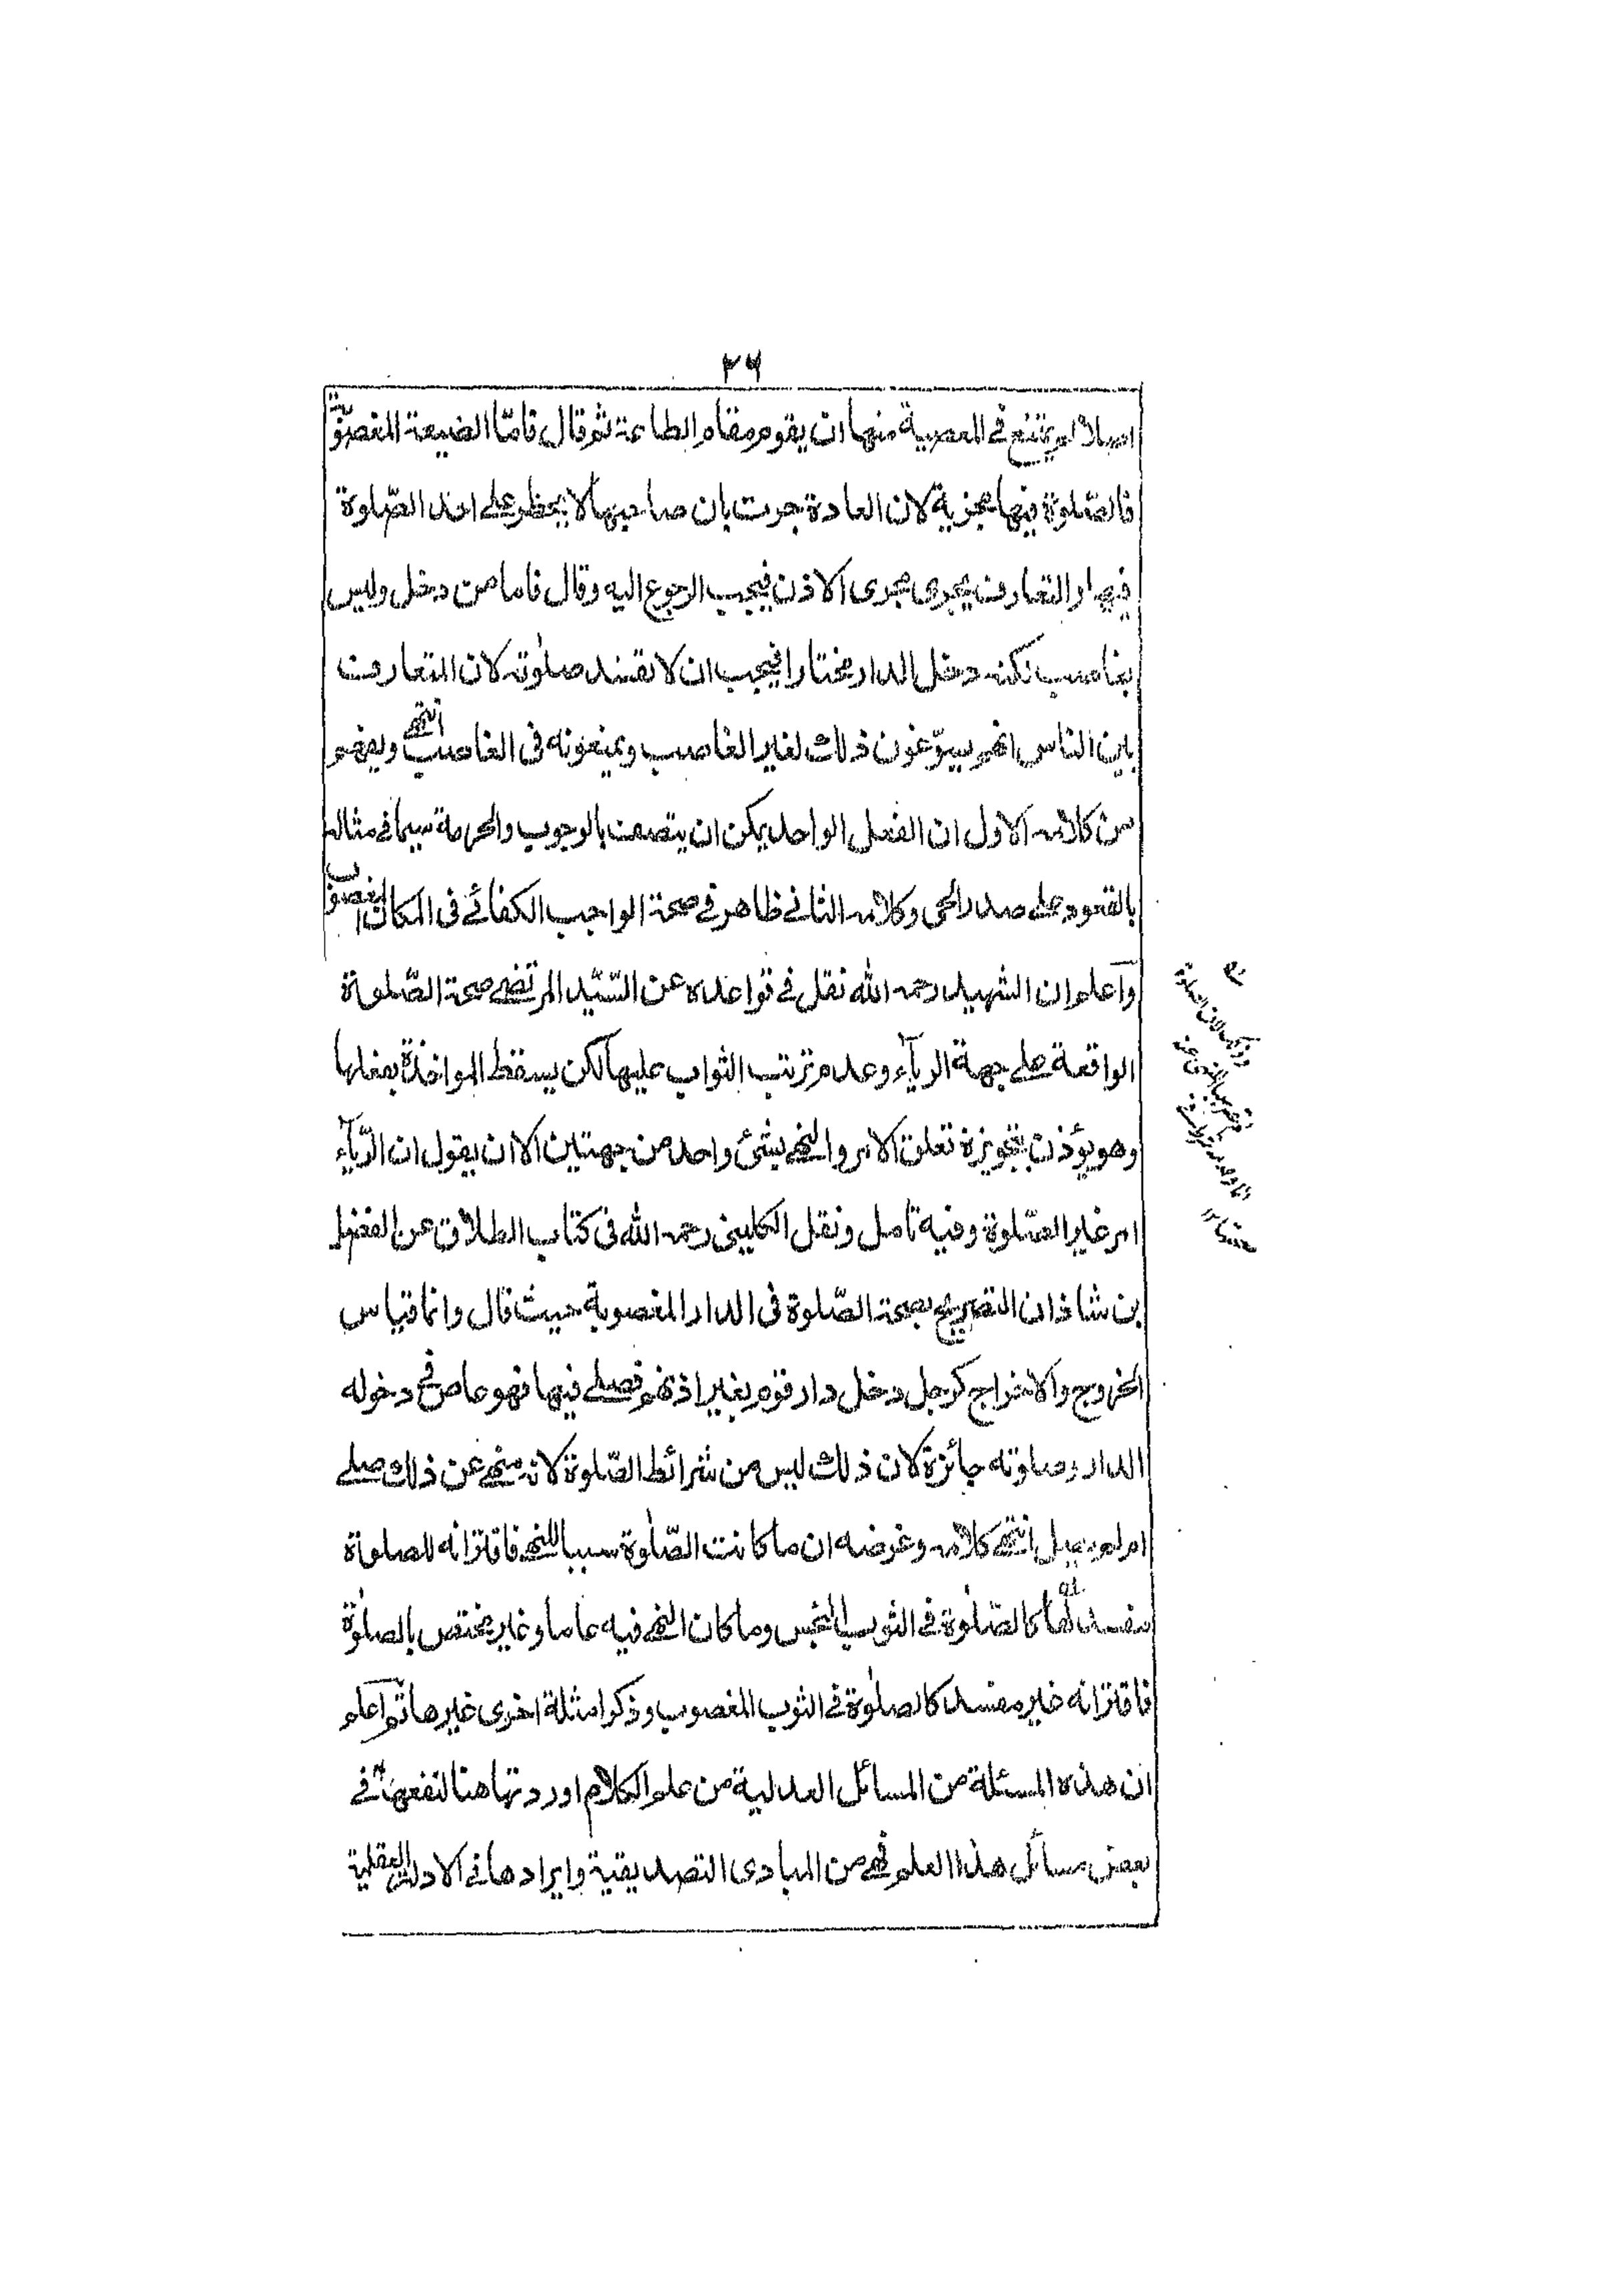 ٢٦
اصلا لم يمتنع في المعصية منها ان يقوم مقام الطاعة ثم قال فامّا الضيعة المغصوبة
فالصّلوة فيها مجزية لان العادة جرت بان صاحبها لا يحظر على احد الصّلوة
فيها والتعارف يجرى مجرى الاذن فيجب الرجوع اليه وقال فاما من دخل وليس
بغاصب لكنه دخل الدار مختارا فيجب ان لا تفسد صلوته لان المتعارف
بين الناس انهم يسوّغون ذلك لغير الغاصب ويمنعونه فى الغاصب انتهى ويفهم
من كلامه الاول ان الفعل الواحد يمكن ان يتصف بالوجوب والحرمة سيما فى مثاله
بالقعود على صدر الحى وكلامه الثانى ظاهر فى صحة الواجب الكفائى فى المكان المغصوب
واعلم ان الشهيد رحمه الله نقل فى قواعده عن السّيّد المرتضى صحة الصّلوة
الواقعة على جهة الرياء وعدم ترتب الثواب عليها لكن يسقط المواخذة بفعلها
وهو يؤذن بتجويزه تعلق الامر والنهى بشئ واحد من جهتين الا ان يقول ان الرّيآء
امر غير الصّلوة وفيه تامل ونقل الكلينى رحمه الله فى كتاب الطلاق عن الفضل
بن شاذان التصريح بصحة الصّلوة فى الدار المغصوبة حيث قال وانما قياس
الخروج والاخراج كرجل دخل دار قوم بغير اذنهم فصلى فيها فهو عاص فى دخوله
الدار وصلوته جائزة لان ذلك ليس من شرائط الصّلوة لانه منهى عن ذلك صلى
ام لم يصل انتهى كلامه وغرضه ان ما كانت الصّلوة سببا للنهى فاقترانه للصلوة
مفسد لها كالصّلوة فى الثوب النجس وما كان النهى فيه عاما وغير مختص بالصلوة
فاقترانه غير مفسد كالصلوة فى الثوب المغصوب وذكر امثلة اخرى غيرها ثم اعلم
ان هذه المسئلة من المسائل العدلية من علم الكلام اوردتها هنا لنفعها فى
بعض مسائل هذا العلم فهى من المبادى التصديقية وايرادها فى الادلة العقلية